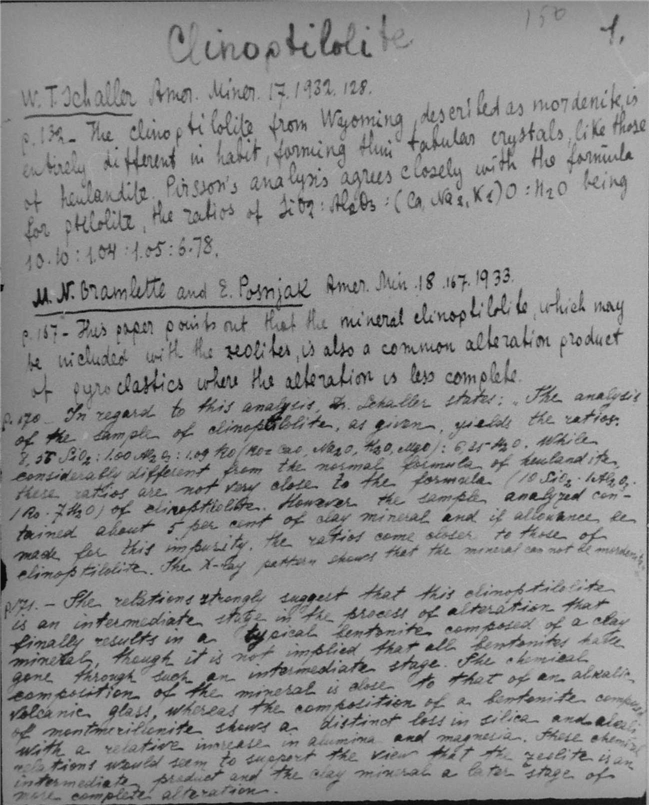 150
Clinoptilolite 1.
W. T. Schaller Amer. Miner. 17. 1932. 128.
p. 132 - The clinoptilolite from Wyoming, described as mordenite, is
entirely different in habit, forming thin tabular crystals, like those
of heulandite. Pirsson's analysis agrees closely with the formula
for ptilolite, the ratios of SiO2 : Al2O3 : (Ca, Na2, K2)O : H2O being
10.10 : 1.04 : 1.05 : 6.78.
M. N. Bramlette and E. Posnjak Amer. Min. 18. 167. 1933.
p. 167 - This paper points out that the mineral clinoptilolite, which may
be included with the zeolites, is also a common alteration product
of pyroclastics where the alteration is less complete.
p. 170. - In regard to this analysis, Dr. Schaller states: "The analysis
of the sample of clinoptilolite, as given, yields the ratios.
8,55 SiO2 : 1.00 Al2O3 : 1.09 RO (RO = CaO, Na2O, K2O, MgO) : 6,25 H2O. While
considerably different from the normal formula of heulandite,
these ratios are not very close to the formula (10 SiO2. 1Al2O3.
1 Ro. 7H2O) of clinoptilolite. However the sample analyzed con-
tained about 5 per cent of clay mineral and if allowance be
made for this impurity, the ratios come closer to those of
clinoptilolite. The X-ray pattern shows that the mineral can not be mordenite.
p. 171. - The relations strongly suggest that this clinoptilolite
is an intermediate stage in the process of alteration that
finally results in a typical bentonite composed of a clay
mineral, though it is not implied that all bentonites have
gone through such an intermediate stage. The chemical
composition of the mineral is close to that of an alkalic
volcanic glass, whereas the composition of a bentonite composed
of montmorillonite shows a distinct loss in silica and alkali
with a relative increase in alumina and magnesia. These chemical
relations would seem to support the view that the zeolite is an
intermediate product and the clay mineral a later stage of
more complete alteration.